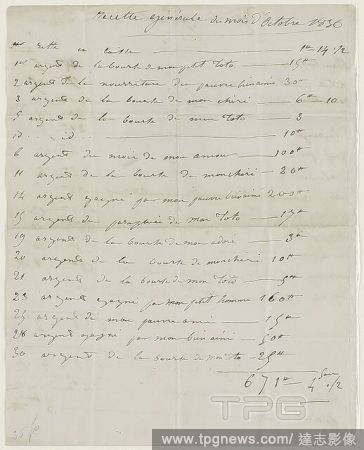 Recette générale du mois d'Octobre 1836
reste en caisse 1# 14 s/2
1er argent de la bourse de mon petit toto 15#
2 argent de la nourriture du pauvre bienaimé 30#
3 argent de la bourse de mon chéri 6# 10
5 argent de la bourse de mon toto 3
id. id 10#
6 argent du mois de mon amour 100#
11 argent de la bourse de mon chéri 20#
14 argent gagné par mon pauvre bienaimé 200#
15 argent du de mon Toto
19 argent de la bourse de mon 3#
20 argent de la bourse de mon chéri 10#
21 argent de la bourse de mon toto
23 argent gagné par mon petit homme 160#
25 argent de mon pauvre ami 15#
argent gagné par mon bien aimé 50#
30 argent de la bourse de mon to
671# 4 sous 1/2
TPG
www.tpgnews.com/達志影像